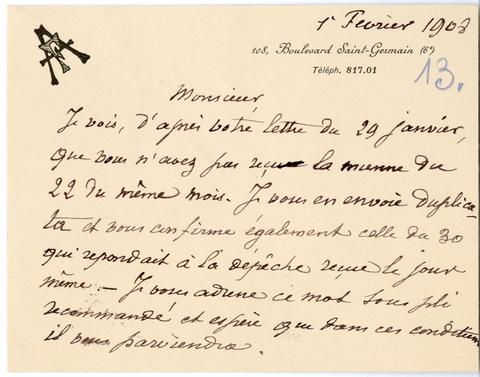 1r Fevrier 1908
108, Boulevard Saint-Germain (6e)
Téléph. 817.01
13.
Monsieur,
Je vois, d'après votre lettre du 29 janvier,
que vous n'avez pas reçu la mienne du
22 du même mois. Je vous en envoie duplica-
ta et vous confirme également celle du 30
qui repondait à la depêche reçue le jour
même. — Je vous adresse ce mot sous pli
recommandé et espère que dans ces conditions
il vous parviendra.